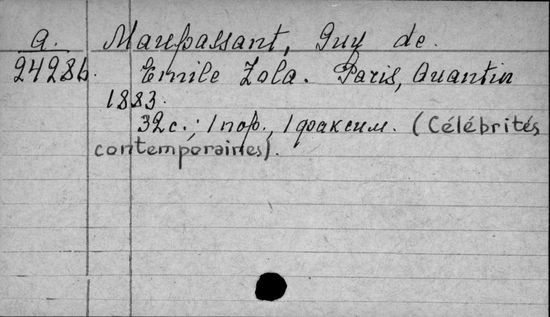 a. Maupassant, Guy de.
24286. Emile Zola. Paris, Quantin
1883.
32 с.; 1 пор., 1 факсим. (Célébrités
contemporaines).